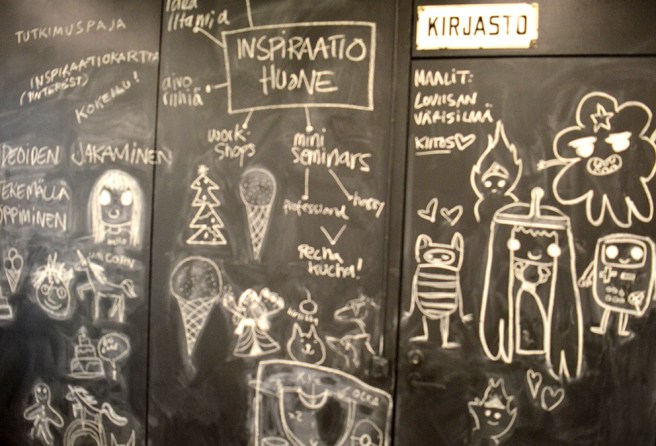 TUTKIMUSPAJA
INSPIRAATIOKARTTA
KOKEILU!
IDEOIDEN JAKAMINEN
TEKEMÄLLÄ
OPPIMINEN
UNICORN
idea
iltamia
INSPIRAATIO
HUONE
aivo
riihiä
work-
shops
mini
seminars
professional
happy
Pecha
kucha!
KIRJASTO
MAALIT:
LOUISAN
VÄRISILMÄ
KIITOS